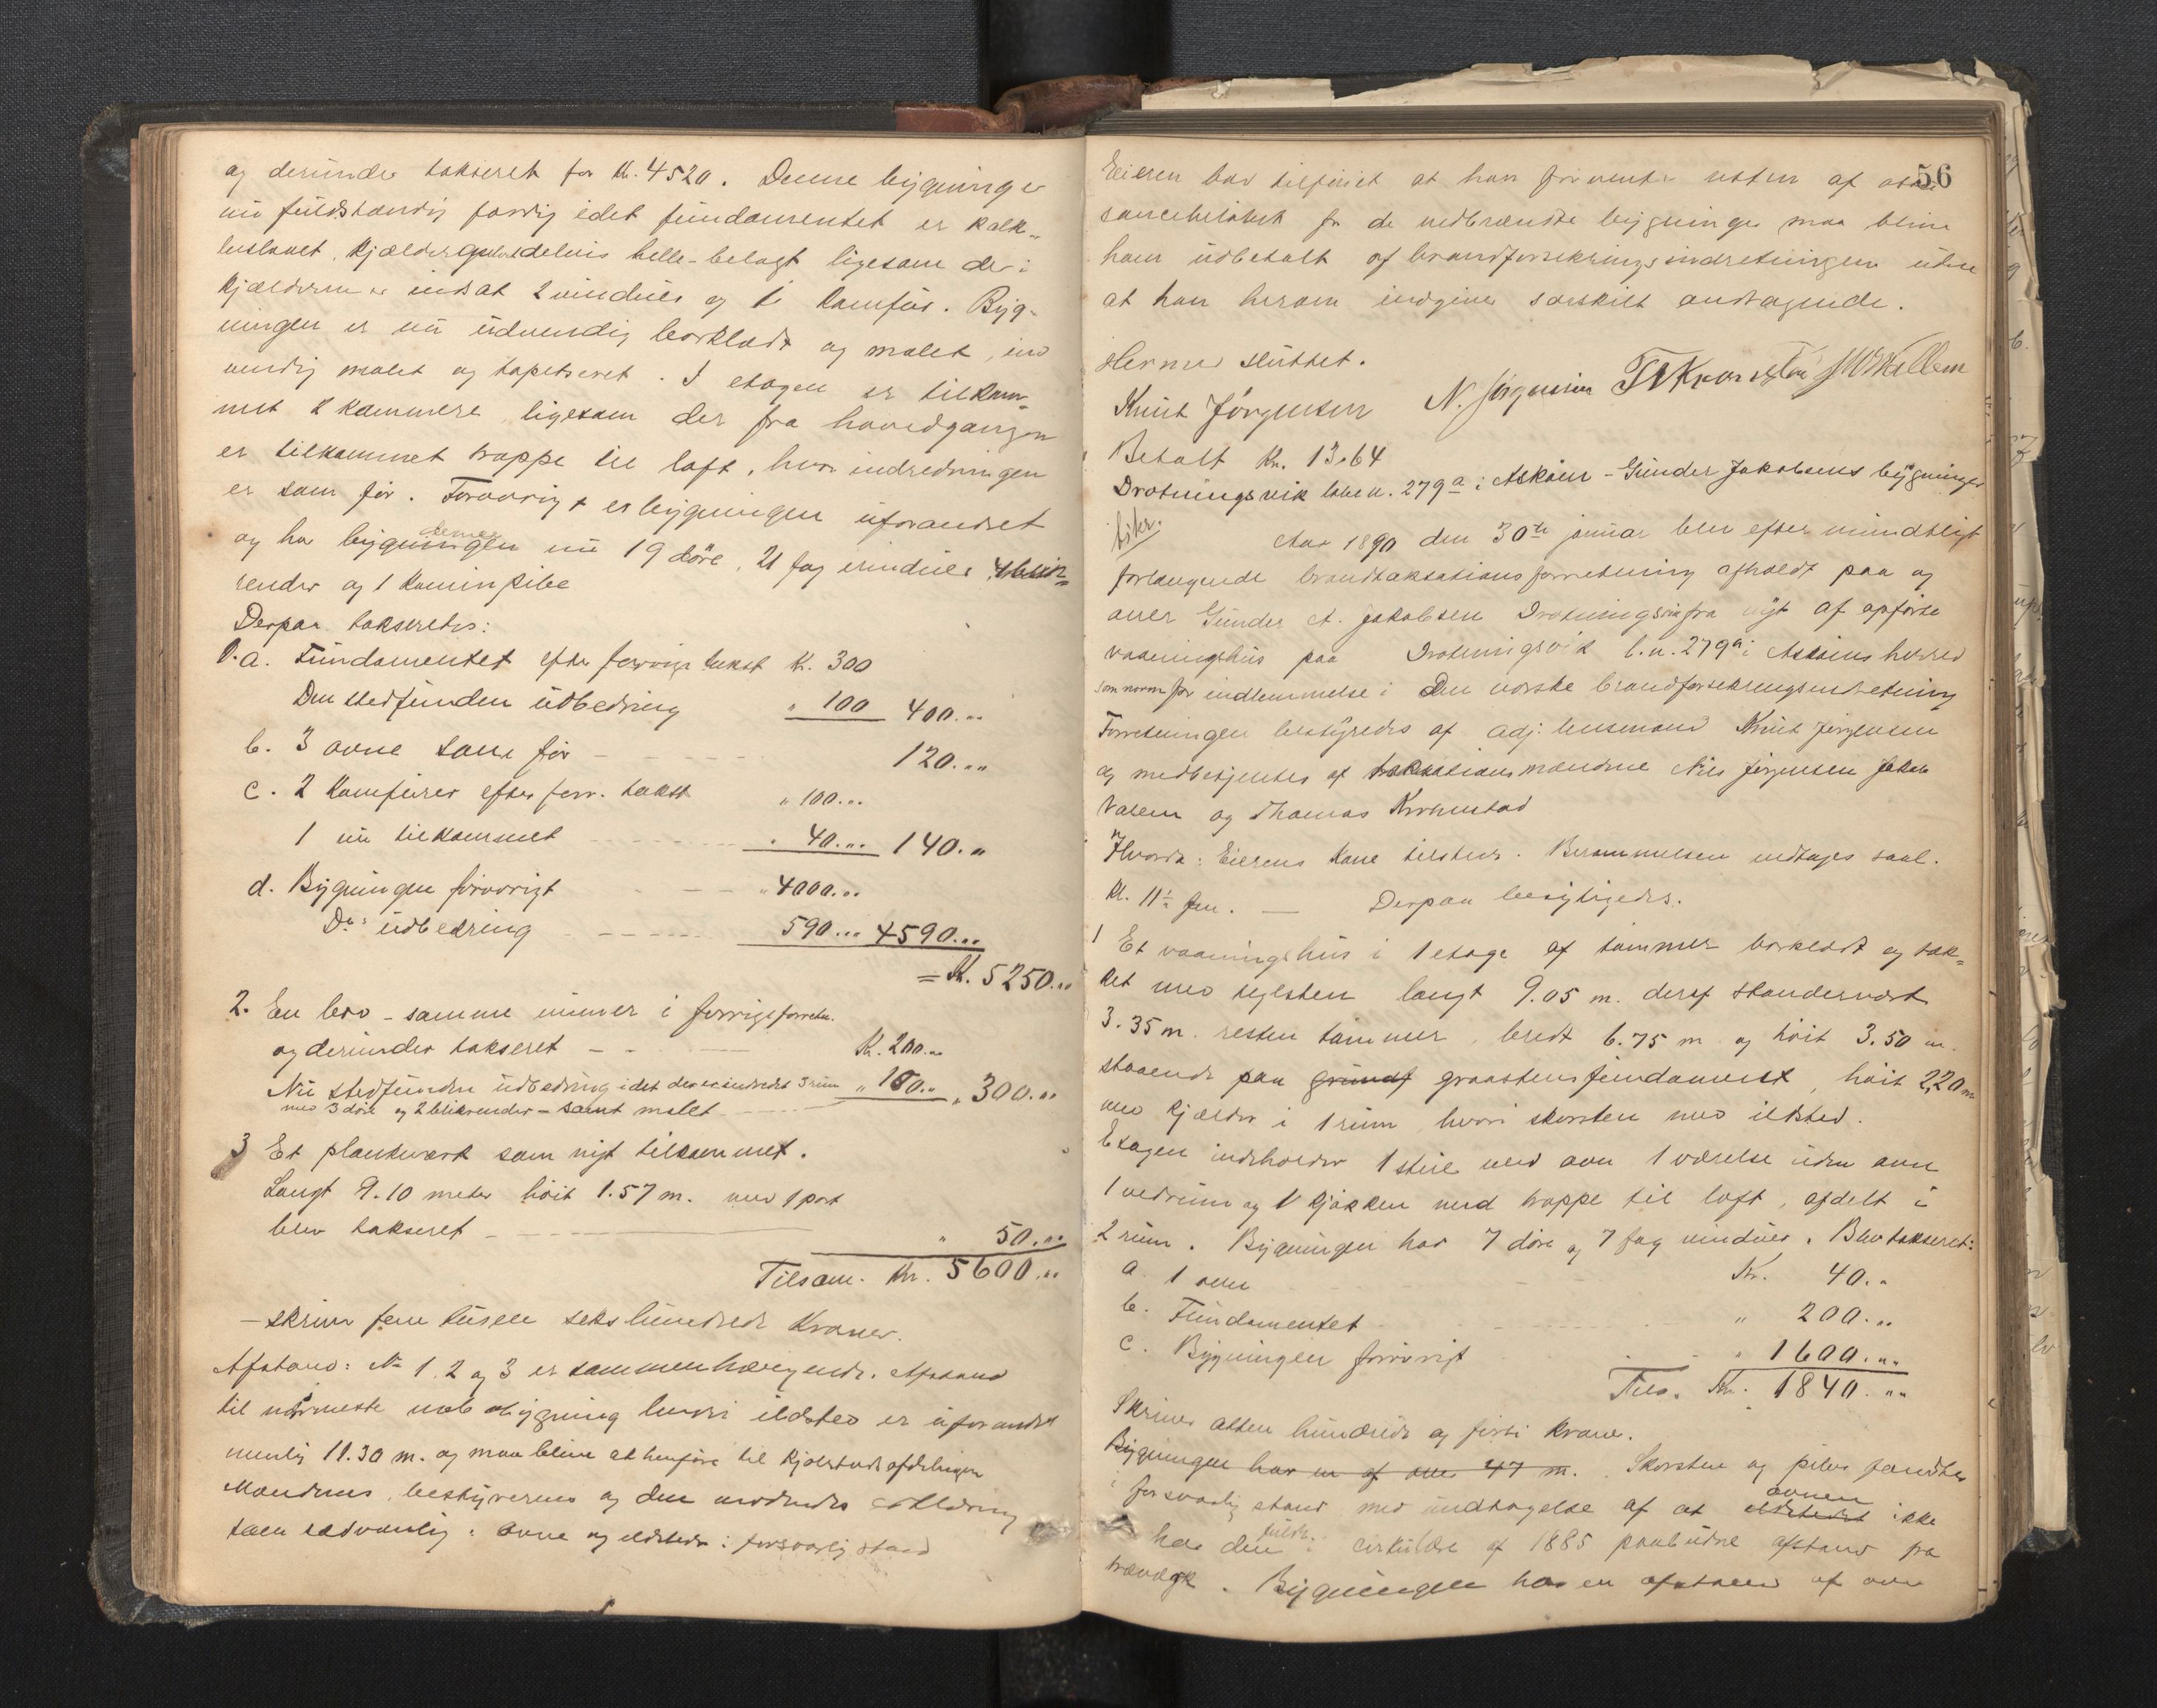 og derunder takseret for Kr. 4520. Denne bygning er
nu fuldstændig færdig idet fundamentet er kalk-
kjælderen er indsat 2 vinduer og 1 komfur. Byg-
ningen er nu udvendig bordklædt og malet, ind
vendig malet og tapetseret. I etagen er tilkom-
met 2 kammere, ligesom der fra hovedgangen
er tilkommet trappe til loft, hvor indredningen
er som før. Forøvrigt er bygningen uforandret
og har bygningen denne nu 19 døre, 21 fag vinduer, 4 blik-
render og 1 kaminpibe
Derpaa takseredes:
1. a. Fundamentet efter forrige takst Kr. 300
Den stedfunden udbedring " 100 400...
b. 3 ovne som før 120...
c. 2 Komfurer efter forr. takst " 100...
1 nu tilkommet " 40... 140."
d. Bygningen forøvrigt " 4000...
Do: udbedring 590... 4590...
= Kr. 5250...
2. En bod - samme numer i forrige forretn.
og derunder takseret Kr. 200...
Nu stedfunden udbedring idet der er indredet 3 rum " 100.. " 300...
med 3 døre og 2 blikrender - samt malet
3 Et plankeværk som nyt tilkommet.
Langt 9.10 meter høit 1.57 m. med 1 port
blev takseret " 50...
Tilsam. Kr. 5600...
- skriver fem tusen sekshundrede Kroner.
Afstand: No 1, 2 og 3 er sammenhængende. Afstand
til nærmeste nabobygning hvori ildsted er uforandret
nemlig 11.30 m. og maa blive at henføre til Kjøbstadsafdelingen
Mændenes, bestyrerens og den anordnede erklæring
som sædvanlig. Ovne og ildsteder i forsvarlig stand
56
Eieren har tilføiet at han forventer resten af assu
rancebeløbet for de nedbrændte bygninger maa blive
ham udbetalt af brandforsikringsindretningen uden
at han herom indgiver særskilt andragende.
Hermed sluttet.
Knut Jørgensen N. Jørgensen Th Kronstad J W Wallem
Betalt Kr. 13.64
Drotningsvik løben. 279a i Askøen - Gunder Jakobsens bygninger
Aar 1890 den 30te januar blev efter mundtligt
forlangende brandtaksationsforretning afholdt paa og
over Gunder A. Jakobsen Drotningsvik fra nyt af opførte
vaaningshus paa Drotningsvik l.n. 279a i Askøens herred
som norm for indlemmelse i Den norske brandforsikringsindretning
Forretningen bestyredes af adj. lensmand Knut Jørgensen
og medbetjentes af taksationsmændene Nils Jørgensen Jakob
Valem og Thomas Kronstad
Hvorda: Eierens Kone tilstede. Berammelsen vedtoges saal.
Kl. 11½ fm. — Derpaa besigtigedes.
1 Et vaaningshus i 1 etage af tømmer bordklædt og tæk-
ket med teglsten langt 9.05 m. deraf standerværk
3.35 m. resten tømmer, bredt 6.75 m og høit 3.50 m.
staaende paa grundf graastensfundament, høit 2,20 m
med kjælder i 1 rum hvori skorsten med ildsted.
Etagen indeholder 1 stue med ovn 1 værelse uden ovn
1 vedrum og 1 kjøkken med trappe til loft, afdelt i
2 rum. Bygningen har 7 døre og 7 fag vinduer. Blev takseret:
a. 1 ovn Kr. 40..
b. Fundamentet " 200...
c. Bygningen forøvrigt " 1600...
Tils. Kr. 1840...
Skriver atten hundrede og firti kroner.
Bygningen har en af over 47 m. Skorsten og piber fandtes
i forsvarlig stand med undtagelse af at ildstedet ovnen ikke
har den i cirkulære af 1885 paabudne afstand fra
trævæg. Bygningen har en afstand af over